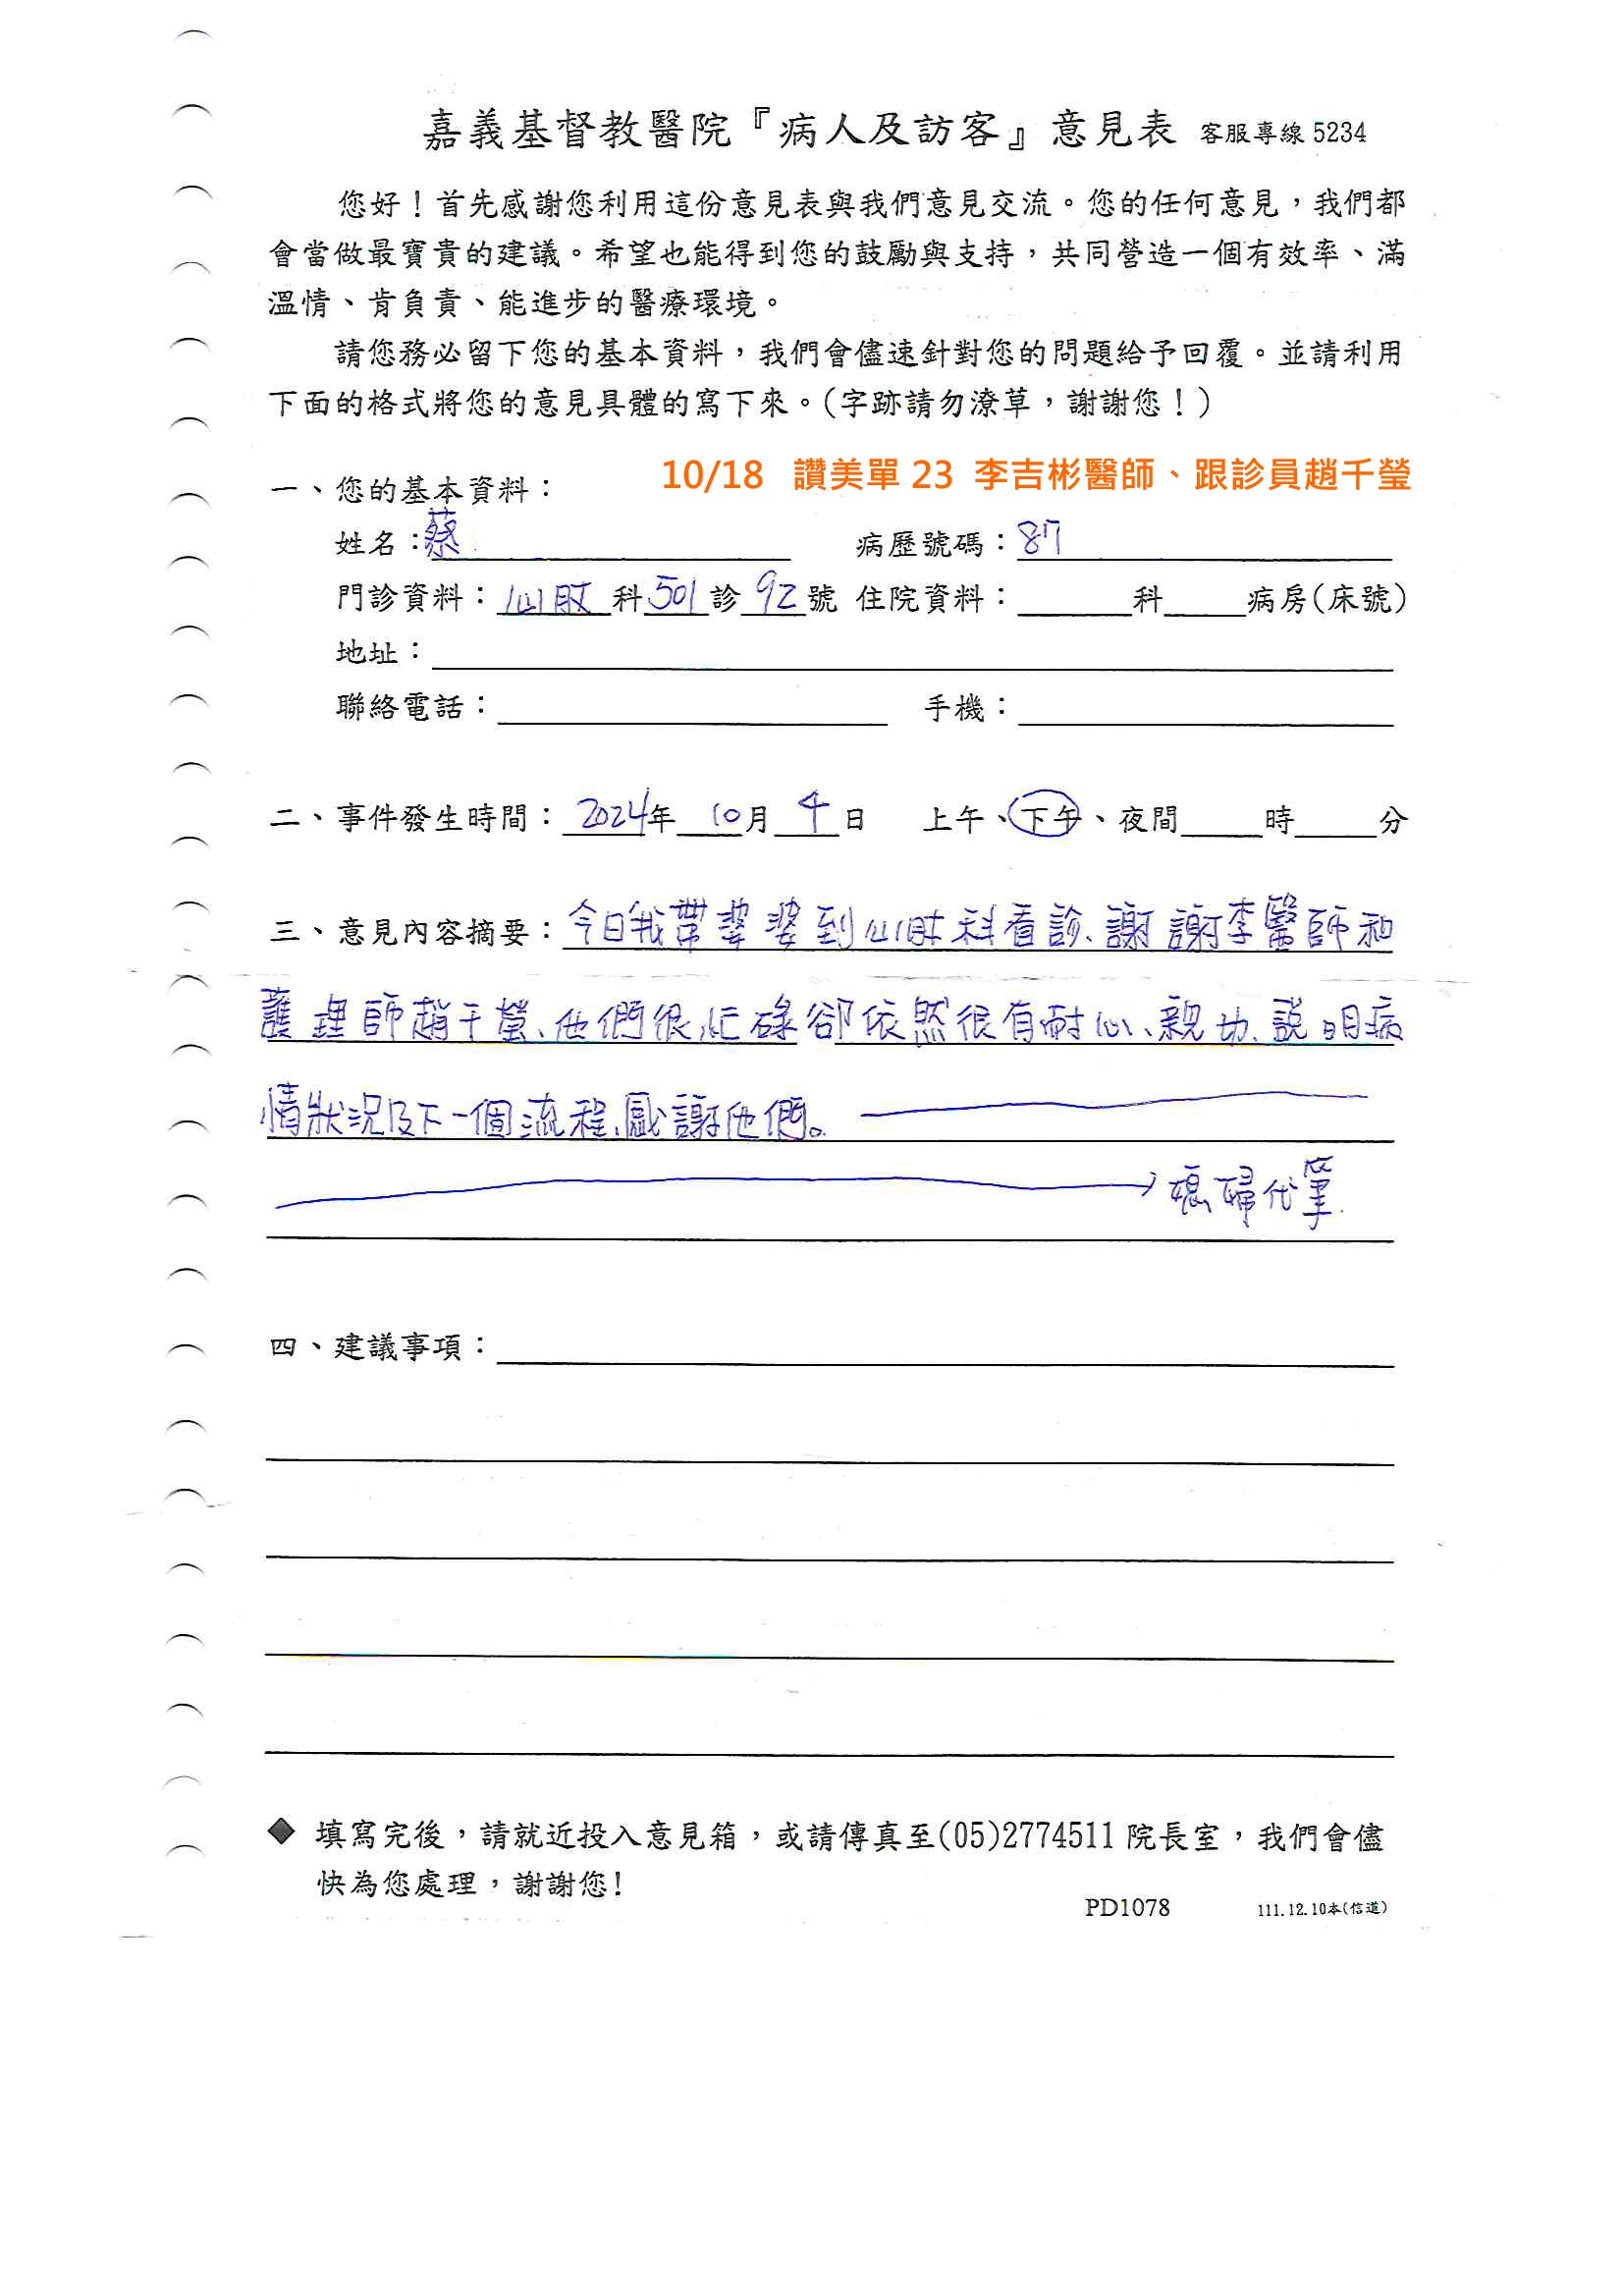 嘉義基督教醫院『病人及訪客』意見表 客服專線 5234
您好！首先感謝您利用這份意見表與我們意見交流。您的任何意見，我們都
會當做最寶貴的建議。希望也能得到您的鼓勵與支持，共同營造一個有效率、滿
溫情、肯負責、能進步的醫療環境。
請您務必留下您的基本資料，我們會儘速針對您的問題給予回覆。並請利用
下面的格式將您的意見具體的寫下來。(字跡請勿潦草，謝謝您！)
10/18 讚美單 23 李吉彬醫師、跟診員趙千瑩
一、您的基本資料：
姓名：蔡 病歷號碼：87
門診資料：心臟科 501 診 92 號 住院資料： 科 病房(床號)
地址：
聯絡電話： 手機：
二、事件發生時間：2024年 10月 4日 上午、下午、夜間 時 分
三、意見內容摘要：今日我帶婆婆到心臟科看診、謝謝李醫師和
護理師趙千瑩、他們很忙碌卻依然很有耐心、親切、說明病
情狀況及下一個流程、感謝他們。
媳婦代筆.
四、建議事項：
◆ 填寫完後，請就近投入意見箱，或請傳真至(05)2774511 院長室，我們會儘
快為您處理，謝謝您!
PD1078 111.12.10本(信道)